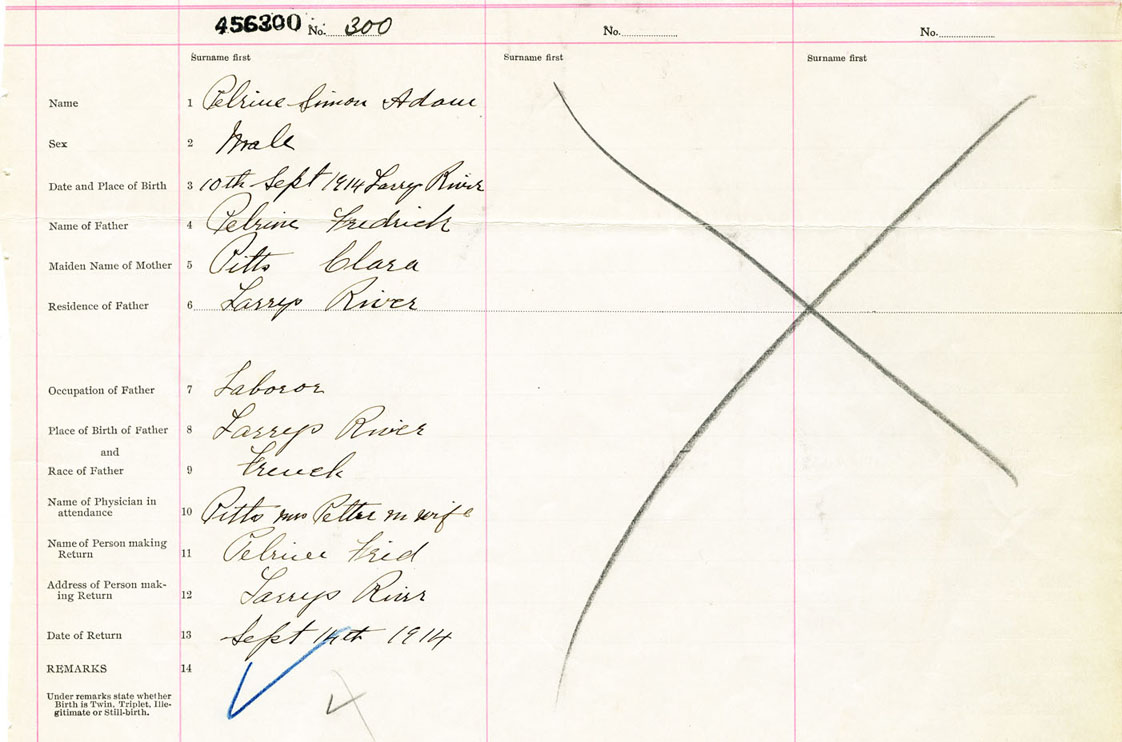 456300 No. 300 No. No.
Surname first Surname first Surname first
Name 1 Pelrine Simon Adam
Sex 2 Male
Date and Place of Birth 3 10th Sept 1914 Larrys River
Name of Father 4 Pelrine Fredrick
Maiden Name of Mother 5 Pitts Clara
Residence of Father 6 Larrys River
Occupation of Father 7 Laboror
Place of Birth of Father 8 Larrys River
and
Race of Father 9 French
Name of Physician in
attendance 10 Pitts Mrs m wife
Name of Person making
Return 11 Pelrine Fred
Address of Person mak-
ing Return 12 Larrys River
Date of Return 13 Sept 14th 1914
REMARKS 14
Under remarks state whether
Birth is Twin, Triplet, Ille-
gitimate or Still-birth.